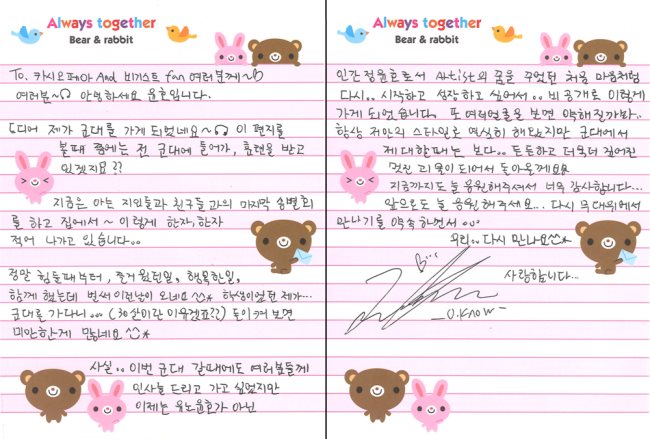 Always together
Bear & rabbit
To. 카시오페아 And 비기스트 fan 여러분께~
여러분~ 안녕하세요 윤호입니다.
드디어 제가 군대를 가게 되었네요~ 이 편지를
볼때 쯤에는 전 군대에 들어가, 훈련을 받고
있겠지요??
지금은 아는 지인들과 친구들과의 마지막 송별회
를 하고 집에서~ 이렇게 한자, 한자
적어 나가고 있습니다..
정말 힘들때부터, 즐거웠던일, 행복한일,
함께 했는데 벌써 이런날이 오네요^^* 학생이었던 제가...
군대를 가다니... (30살이란 이유겠죠??) 돌이켜 보면
미안한게 많네요^^*
사실.. 이번 군대 갈때에도 여러분들께
인사를 드리고 가고 싶었지만
이제는 유노윤호가 아닌
Always together
Bear & rabbit
인간 정윤호로서 Artist의 꿈을 꾸었던 처음 마음처럼
다시.. 시작하고 성장하고 싶어서.. 비공개로 이렇게
가게 되었습니다. 또 여러분들을 보면 약해질까봐..
항상 저만의 스타일로 열심히 해왔지만 군대에서
제대할때는 보다.. 든든하고 더욱더 깊어진
멋진 괴물이 되어서 돌아올께요
지금까지도 늘 응원해주셔서 너무 감사합니다...
앞으로도 늘 응원해주세요... 다시 무대위에서
만나기를 약속하면서..
우리.. 다시 만나요^^*
사랑합니다...
-U.Know-